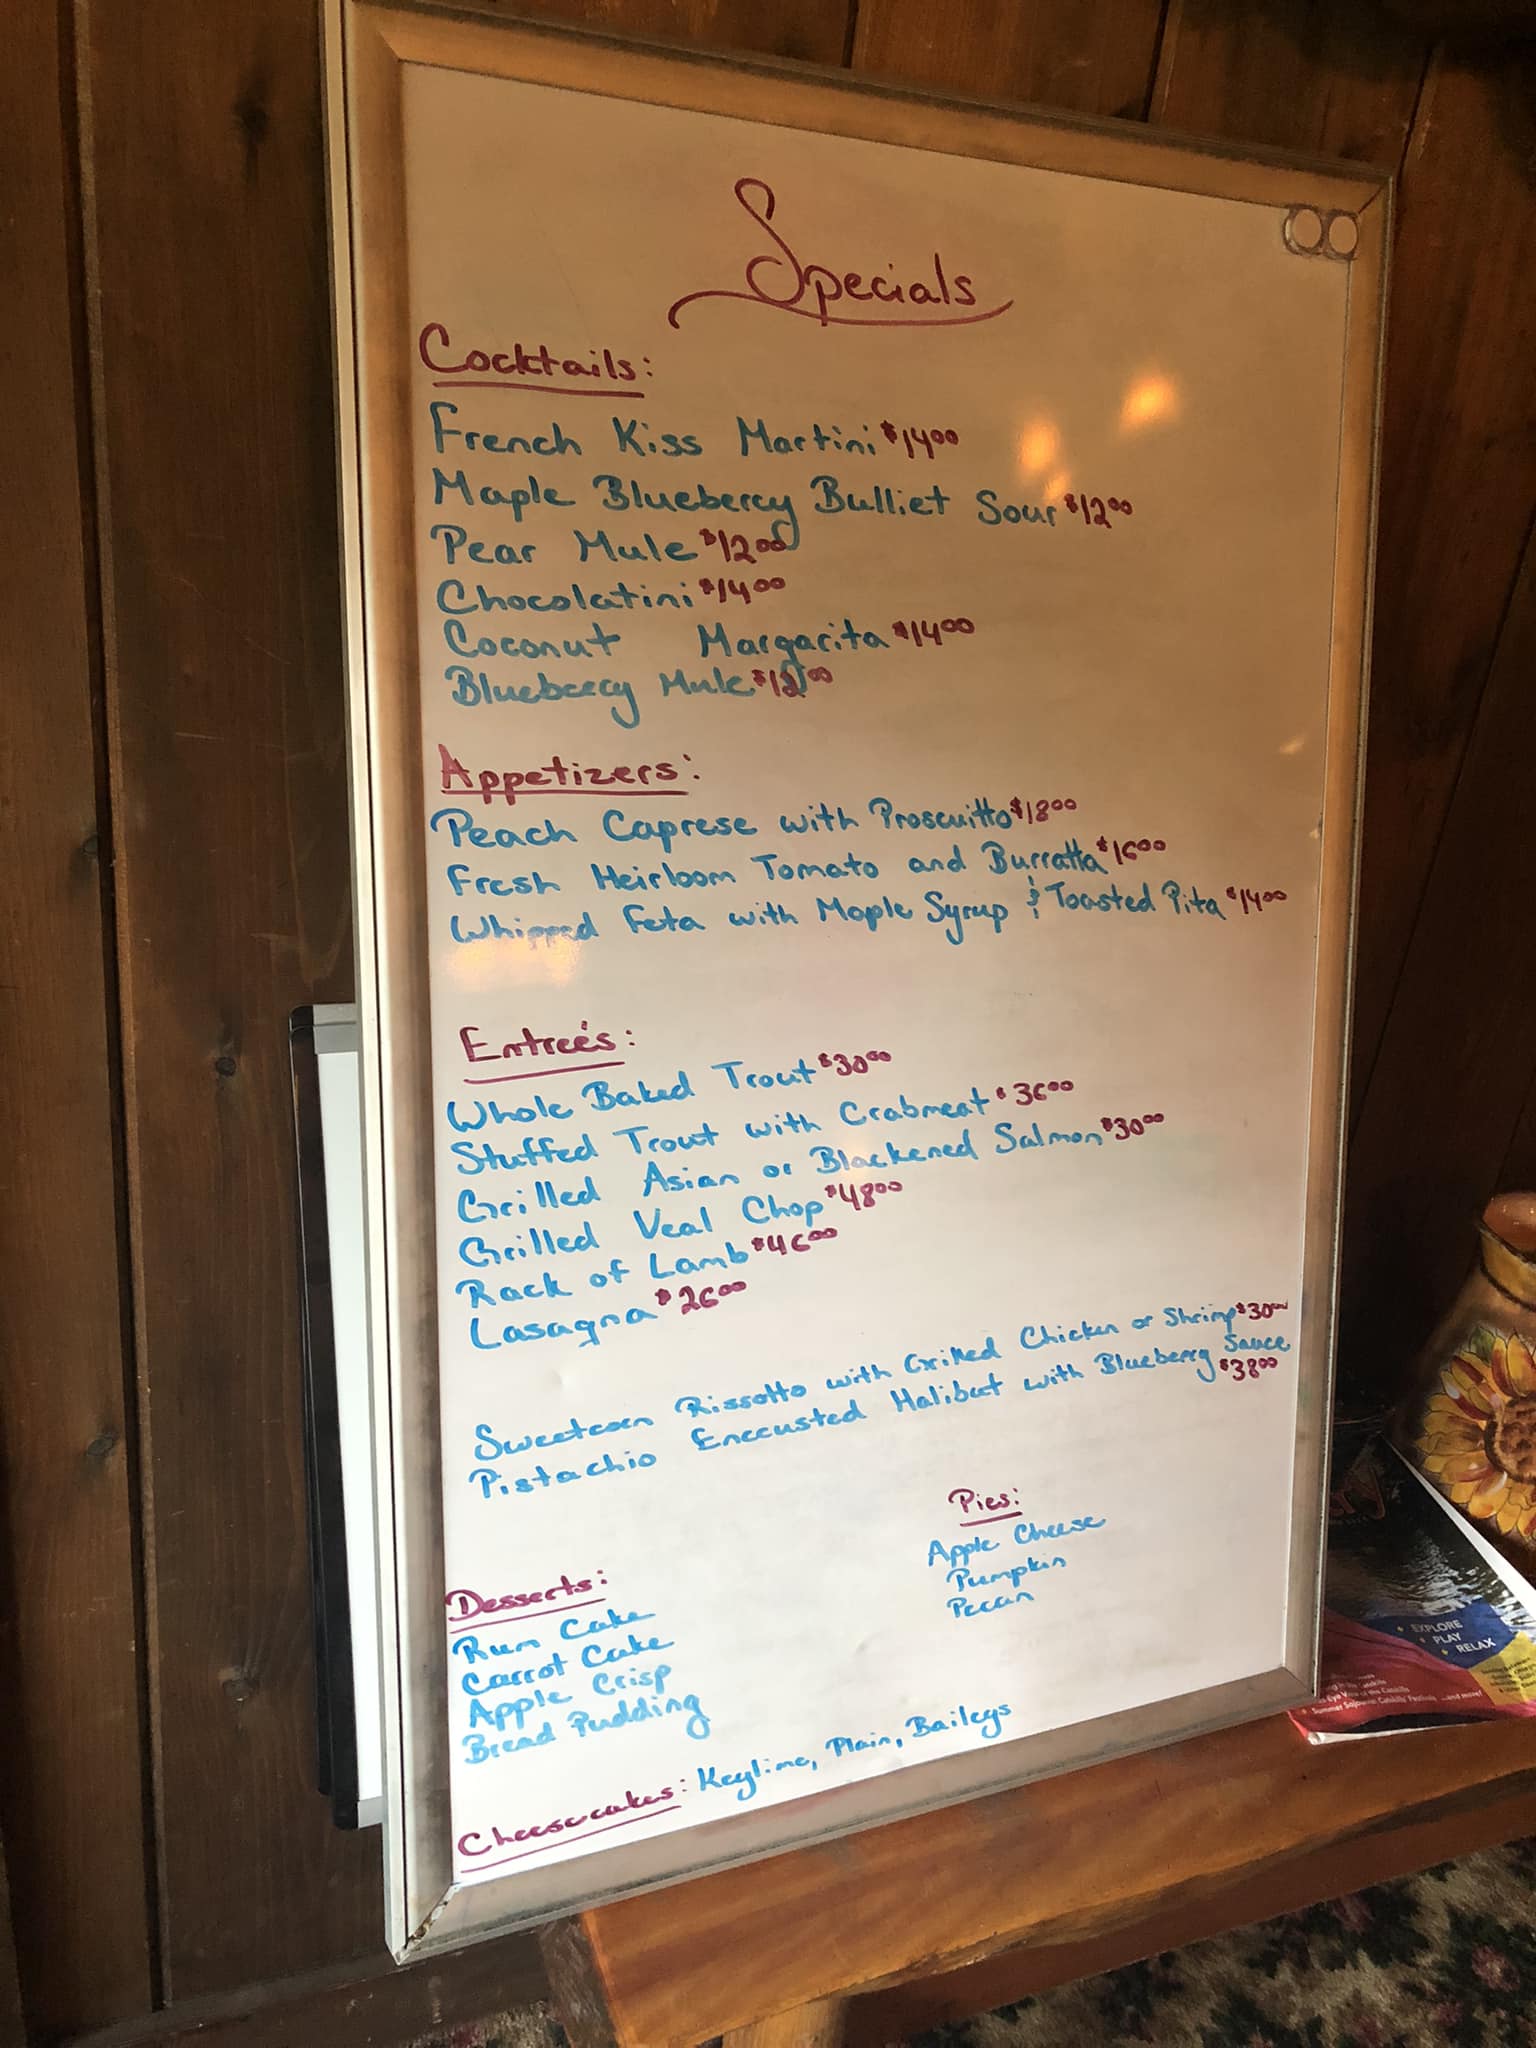 Specials
Cocktails:
French Kiss Martini $14.00
Maple Blueberry Bulliet Sour $12.00
Pear Mule $12.00
Chocolatini $14.00
Coconut Margarita $14.00
Blueberry Mule $12.00
Appetizers:
Peach Caprese with Proscuitto $18.00
Fresh Heirloom Tomato and Burratta $16.00
Whipped Feta with Maple Syrup & Toasted Pita $14.00
Entreés:
Whole Baked Trout $30.00
Stuffed Trout with Crabmeat $36.00
Grilled Asian or Blackened Salmon $30.00
Grilled Veal Chop $48.00
Rack of Lamb $46.00
Lasagna $26.00
Sweetcorn Rissotto with Grilled Chicken or Shrimp $30.00
Pistachio Encrusted Halibut with Blueberry Sauce
$38.00
Pies:
Apple Cheese
Pumpkin
Pecan
Desserts:
Rum Cake
Carrot Cake
Apple Crisp
Bread Pudding
Cheesecakes: Keylime, Plain, Baileys
• EXPLORE
• PLAY
• RELAX